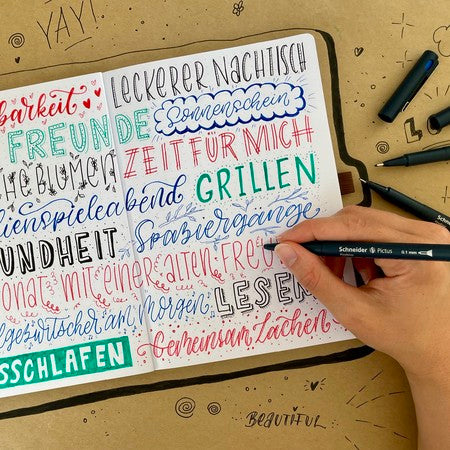 YAY!
LECKERER NACHTISCH
barkeit
FREUNDE
Sonnenschein
HE BLUMEN
ZEIT FÜR MICH
ilienspieleabend
GRILLEN
UNDHEIT
Spaziergänge
onat mit einer alten Freu
Schneider Pictus 0.1 mm
lgezwitscher am Morgen
LESEN
SSCHLAFEN
Gemeinsam Lachen
BEAUTIFUL